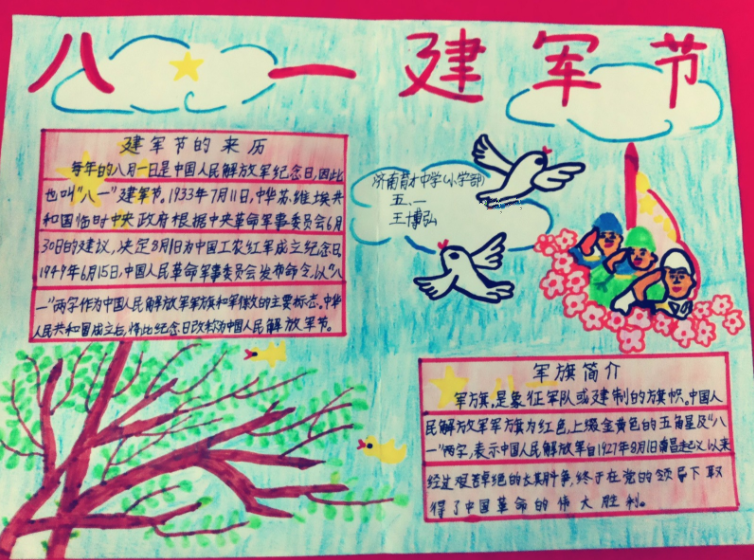 八一建军节
建军节的来历
每年的八月一日是中国人民解放军纪念日,因此
也叫"八一"建军节。1933年7月11日,中华苏维埃共
和国临时中央政府根据中央革命军事委员会6月
30日的建议,决定8月1日为中国工农红军成立纪念日。
1949年6月15日,中国人民革命军事委员会发布命令,以"八
一"两字作为中国人民解放军军旗和军徽的主要标志。中华
人民共和国成立后,将此纪念日改称为中国人民解放军节。
济南育才中学(小学部)
五、一
王博弘
军旗简介
军方旗,是象征军队或建制的旗帜。中国人
民解放军军旗为红色,上缀金黄色的五角星及"八
一"两字,表示中国人民解放军自1927年8月1日南昌起义以来
经过艰苦卓绝的
斗争,终于在党的领导下取
得了中国革命的伟大胜利。